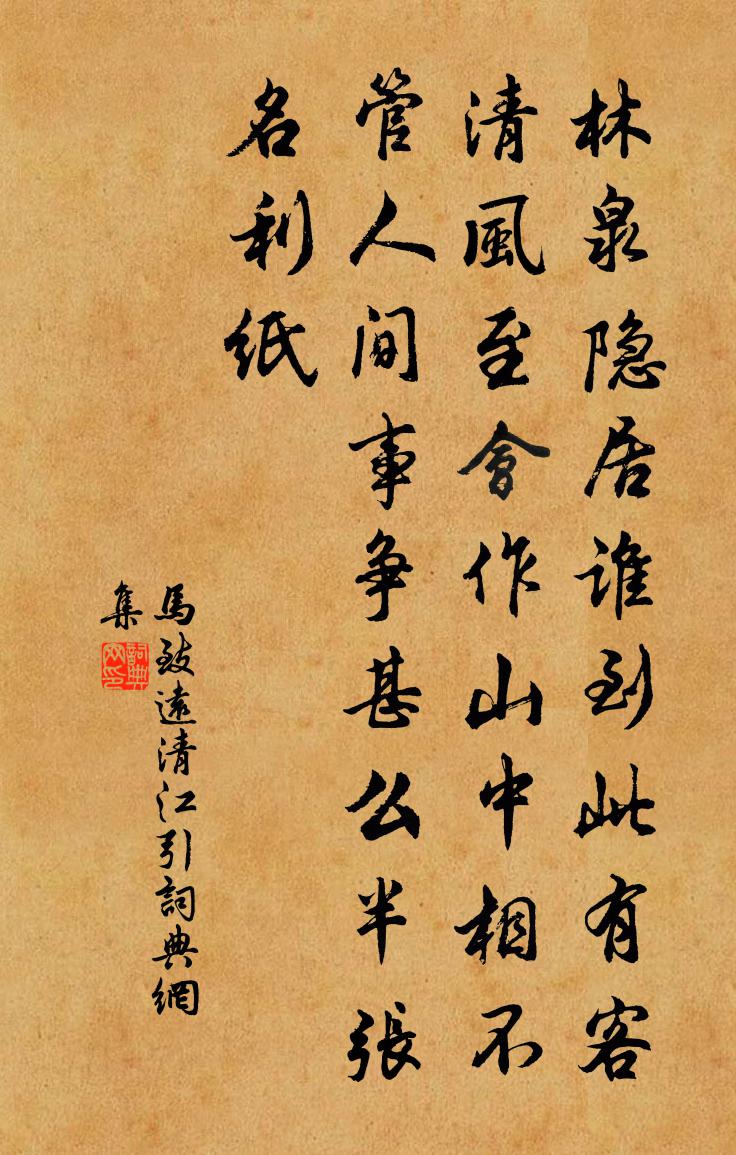 林泉隐居谁到此有客
清風至會作山中相不
管人间事争甚么半張
名利纸
馬致遠清江引詞典網
集
詞典
网印